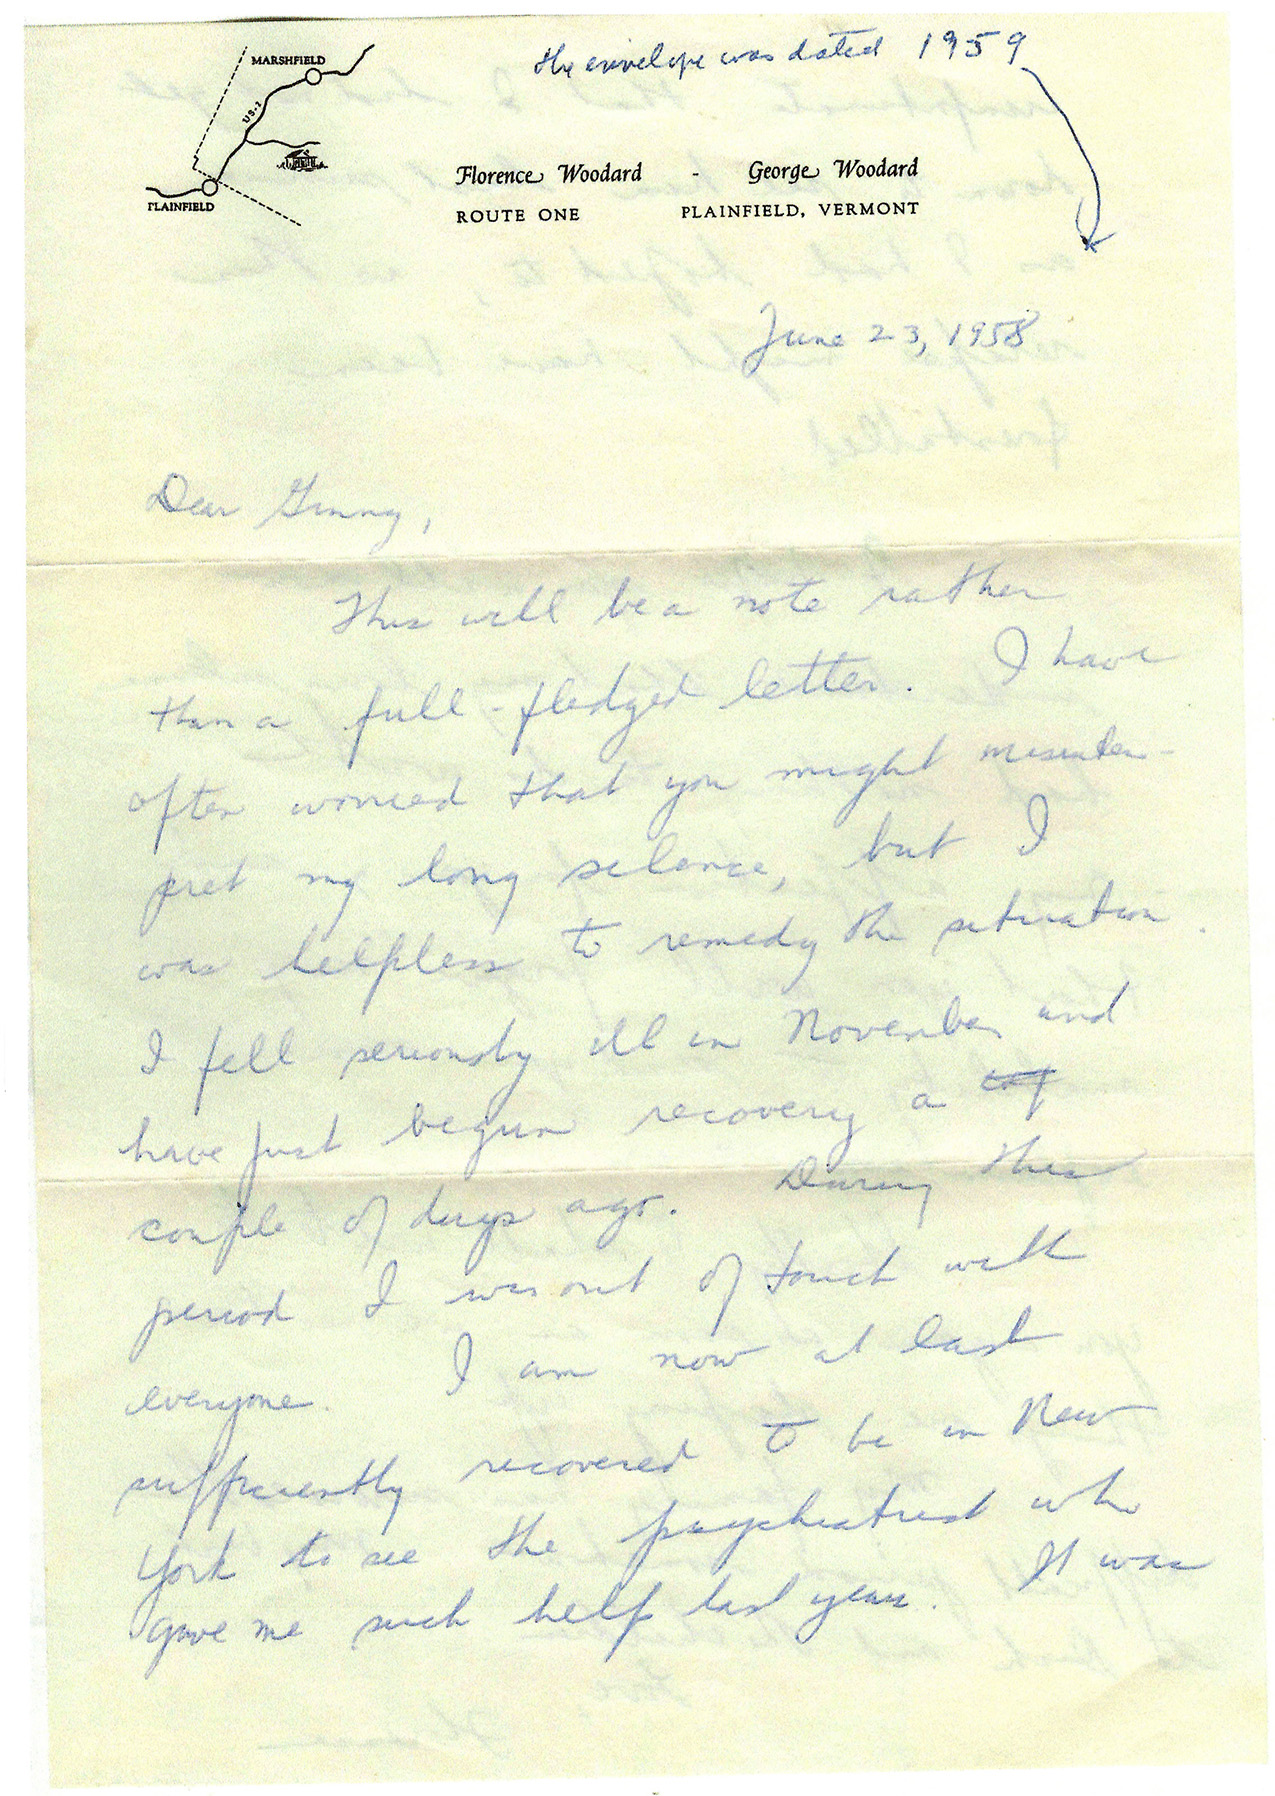 the envelope was dated 1959
MARSHFIELD
US-2
PLAINFIELD
Florence Woodard - George Woodard
ROUTE ONE PLAINFIELD, VERMONT
June 23, 1958
Dear Ginny,
This will be a note rather
than a full-fledged letter. I have
often worried that you might misinter-
pret my long silence, but I
was helpless to remedy the situation.
I fell seriously ill in November and
have just begun recovery a
couple of days ago. During this
period I was out of touch with
everyone. I am now at last
sufficiently recovered to be in New
York to see the psychiatrist who
gave me such help last year. It was